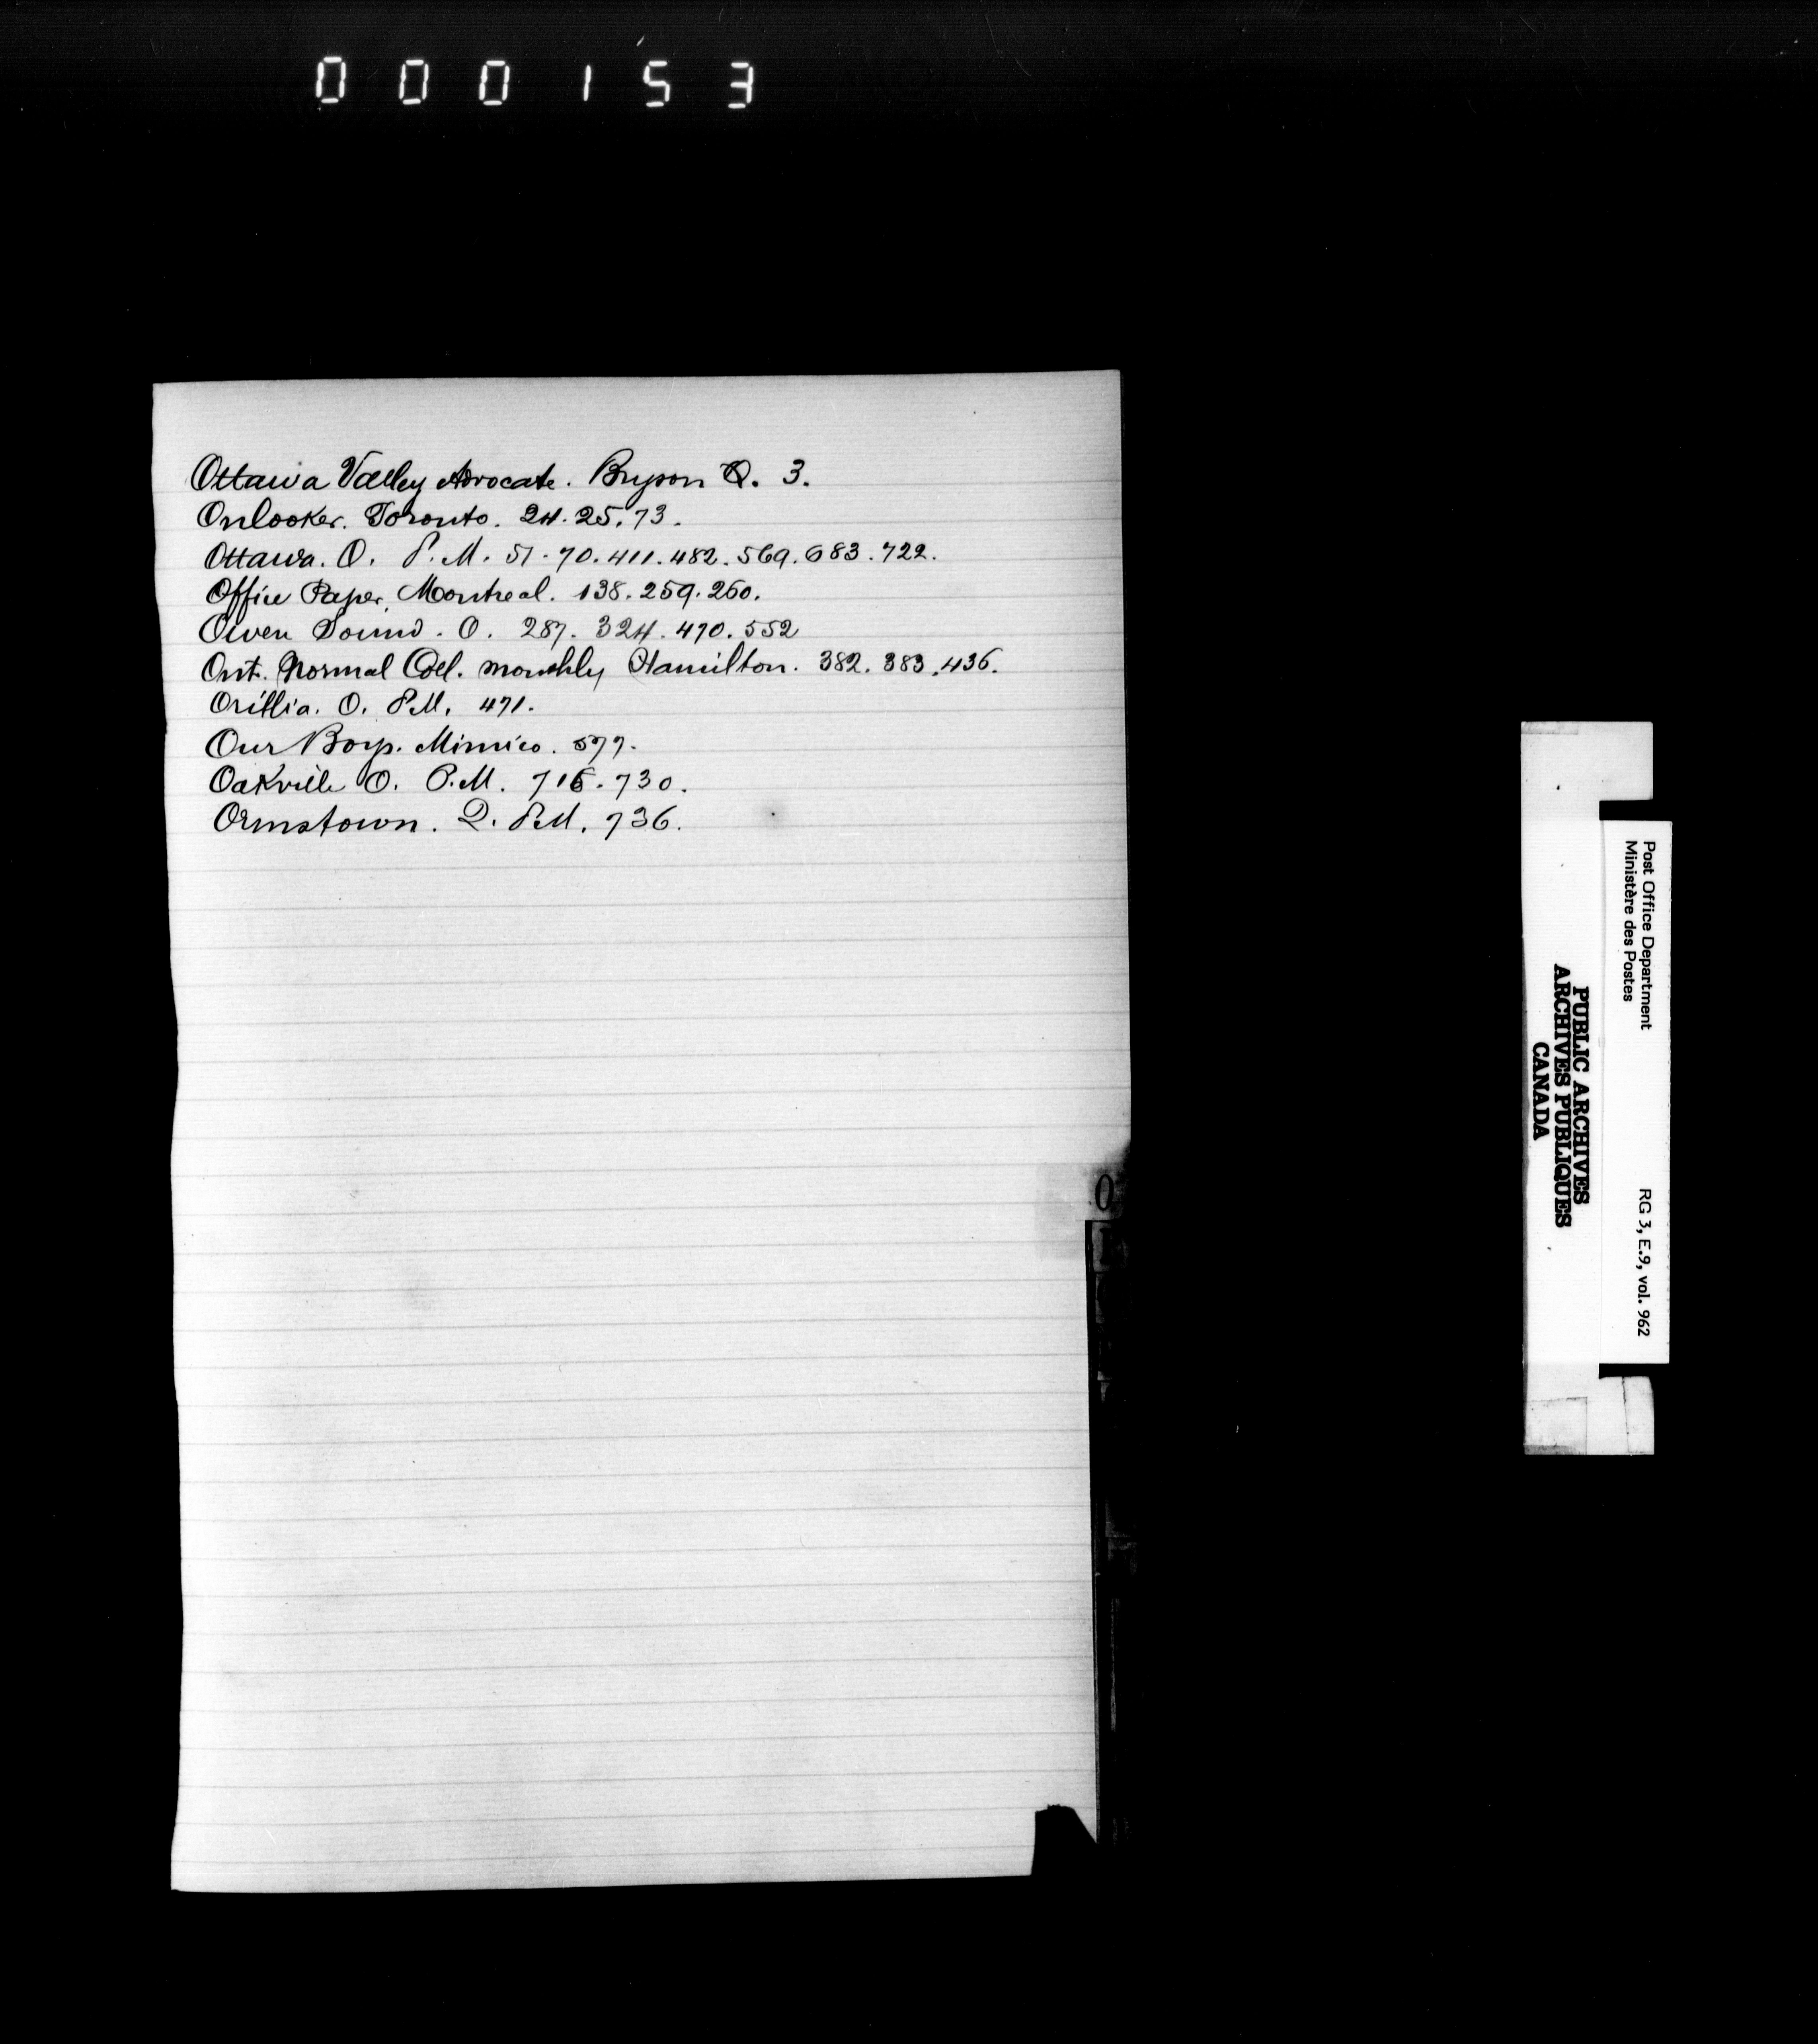 000153
Ottawa Valley Advocate. Bryson Q. 3.
Onlooker. Toronto. 24. 25. 73.
Ottawa. O. P.M. 51. 70. 411. 482. 569. 683. 722.
Office Paper, Montreal. 138. 259. 260.
Owen Sound. O. 287. 324. 470. 552
Ont. Normal Coll. monthly Hamilton. 382. 383. 436.
Orillia. O. P.M. 471.
Our Boys. Mimico. 577.
Oakville O. P.M. 716. 730.
Ormstown. Q. P.M. 736.
O
Post Office Department
Ministère des Postes
RG 3, E.9, vol. 962
PUBLIC ARCHIVES
ARCHIVES PUBLIQUES
CANADA